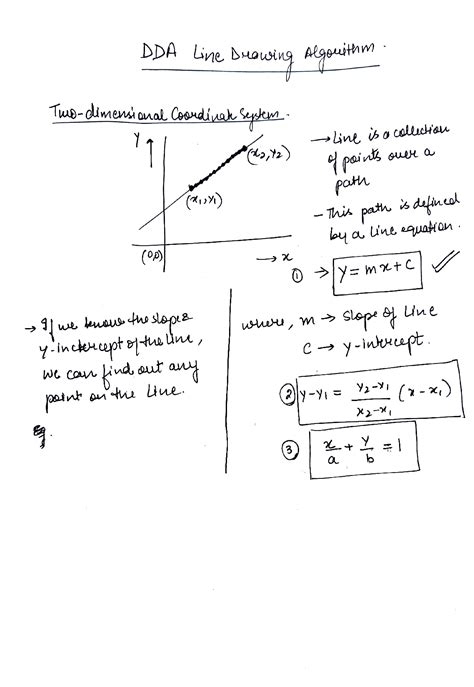 DDA Line Drawing Algorithm.
Two-dimensional Coordinate System.
Y
(x2, y2)
(x1, y1)
(0,0)
→ x
→ Line is a collection
of points over a
path
- This path is defined
by a line equation.
① → y = mx + c ✓
→ If we know the slope &
y-intercept of the line,
we can find out any
point on the line.
Eg.
where, m → slope of line
c → y-intercept.
② y-y1 = y2-y1/x2-x1 (x-x1)
③ x/a + y/b = 1